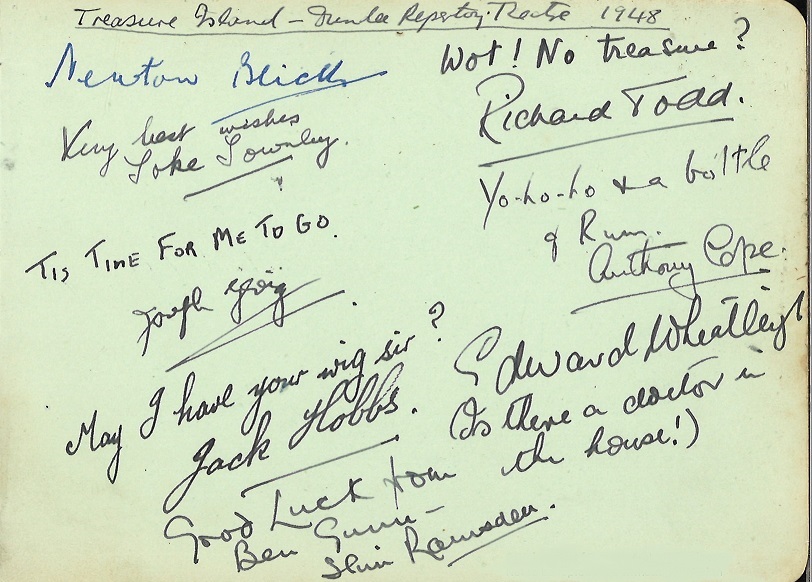 Treasure Island - Dundee Repertory Theatre 1948
Newton Blick
Very best wishes
Toke Townley.
TIS TIME FOR ME TO GO.
Joseph
May I have your wig sir?
Jack Hobbs.
Good Luck from
Ben Gunn -
Ramsden.
Wot! No treasure?
Richard Todd.
Yo-ho-ho & a bottle
of Rum.
Anthony Cope.
Edward Wheatleigh
(Is there a doctor in
the house!)